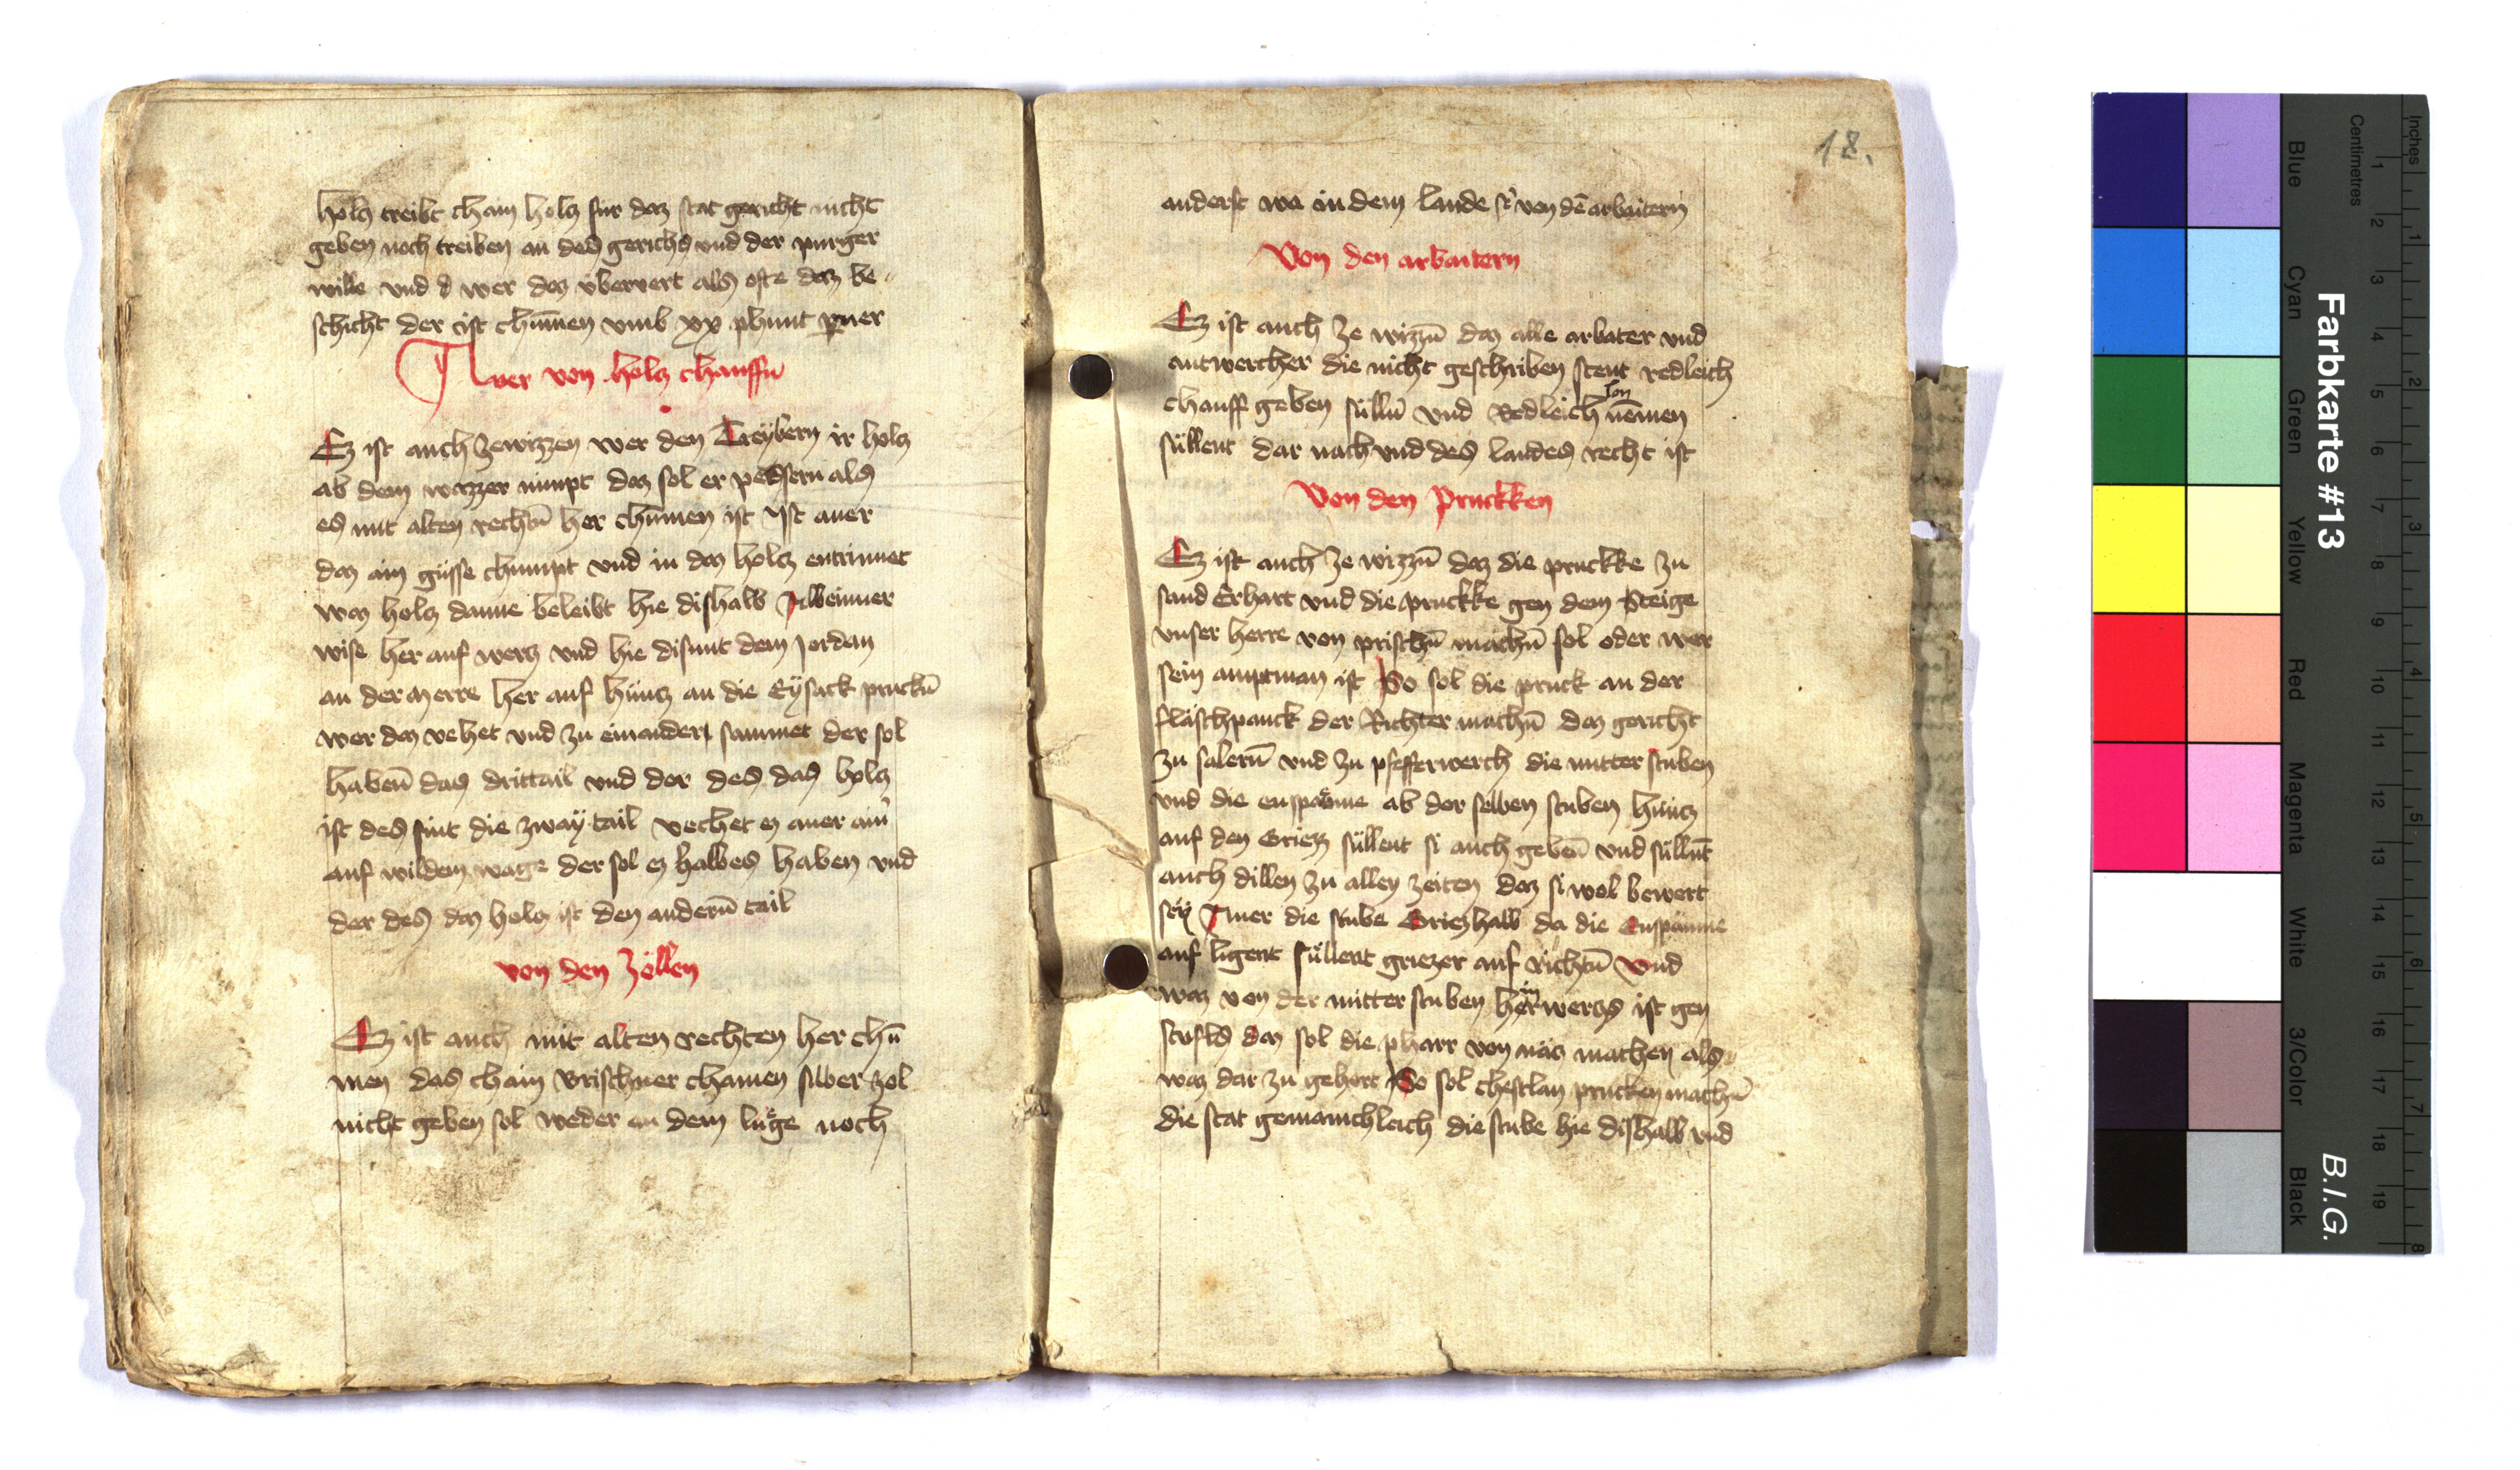 holcz treibt chain holcz fur daz stat gericht nicht
geben noch treiben an des gerichts vnd der purger
wille vnd d wer daz vbervert als ofte daz be-
schicht der ist chūmen vmb xx phunt pner
Aver von holcz chauffn̄
Ez ist auch zewizzen wer den Treÿbern ir holcz
ab dem wazzer nimpt daz sol er pessern als
es mit alten rechtn̄ her chūmen ist Ist auer
daz ain güsse chumpt vnd in daz holcz entrinnet
waz holcz danne beleibt hie dishalb
wise her auf wercz vnd hie disunt dem Jordan
an der merre her auf hüncz an die Eÿsack pruckn̄
wer daz vehet vnd zu einander sammet der sol
habenn̄ das drittail vnd der des das holcz
ist des sint die zwaÿ tail vechet ez auer ain
auf wildem wage der sol ez halbes haben vnd
der des daz holcz ist den andern̄ tail
von den Zöllen
Ez ist auch mit alten rechten her chū
men das chain Brischner chainen silber zol
nicht geben sol weder an dem luge noch
18.
anderst wo in dem lande si von dē arbaitern
Von den arbaitern
Ez ist auch ze wizzn̄ daz alle arbater vnd
antwercher die nicht geschriben stent redleich
chauff geben sülln̄ vnd Redleich lon nēmen
süllent dar nach vnd des landes recht ist
Von den Pruckken
Ez ist auch ze wizzn̄ daz die pruckke zu
sand Erhart vnd die pruckke gen dem Steige
vnser herre von prischn̄ machn̄ sol oder wer
sein amptman ist So sol die pruck an der
fläschpanck der Richter machn̄ daz gericht
zu salern̄ vnd zu pfefferwerch die mitter stuben
vnd die enspäme ab der selben stuben hüncz
auf den Griezz süllent si auch gebn̄ vnd süllnt
auch dillen zu allen zeiten daz si wol bewert
seÿ Auer die stube Griezhalb da die Enspäume
auf ligent süllent griezer auf richtn̄ Vnd
waz von der mitter stuben her in wercz ist gen
stufls daz sol die pharr von nacz machen als
waz dar zu gehort So sol chestlan prucken machn̄
die stat gemainchleich die stube hie dishalb vnd
Farbkarte #13
B.I.G.
Blue
Cyan
Green
Yellow
Red
Magenta
White
3/Color
Black
Centimetres
1
2
3
4
5
6
7
8
9
10
11
12
13
14
15
16
17
18
19
Inches
1
2
3
4
5
6
7
8